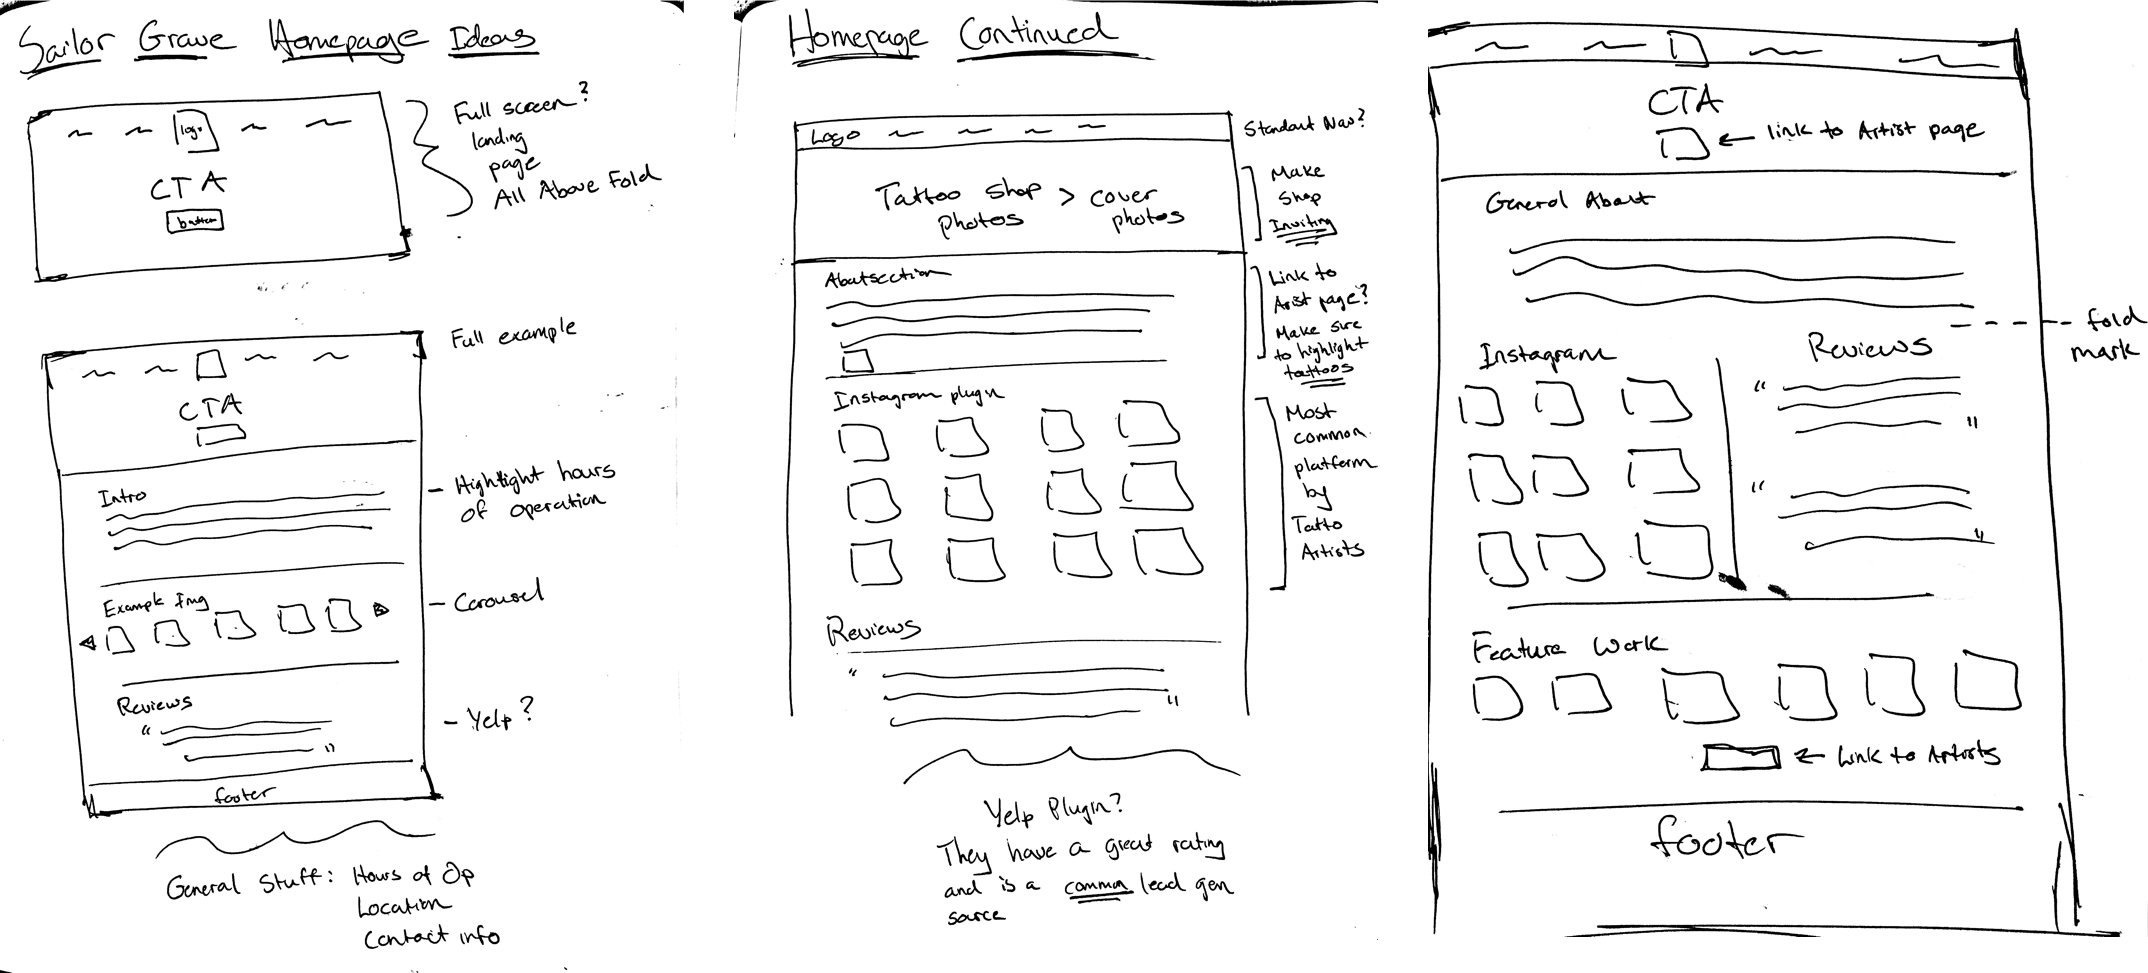 Sailor Grave Homepage Ideas
logo
CTA
button
Full screen?
landing
page
All Above Fold
Full example
CTA
Intro
Highlight hours
of operation
Example Img
Carousel
Reviews
"
"
Yelp?
footer
General Stuff: Hours of Op
Location
Contact info
Homepage Continued
Logo
Standout Nav?
Tattoo Shop > cover
photos photos
Make
Shop
Inviting
About section
Link to
Arist page?
Make sure
to highlight
tattoos
Instagram plugin
Most
common
platform
by
Tatto
Artists
Reviews
"
"
Yelp Plugin?
They have a great rating
and is a common lead gen
source
CTA
← link to Artist page
General About
fold
mark
Instagram
Reviews
"
"
"
"
Feature Work
← Link to Artists
footer